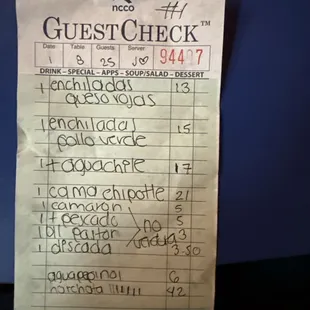 ncco #1
GUESTCHECK™
Date Table Guests Server
1 B 25 J 94427
DRINK – SPECIAL – APPS – SOUP/SALAD – DESSERT
1 enchiladas 13
queso rojas
1 enchiladas 15
pollo verde
1 t aguachile 17
1 cama chipotle 21
1 camaron 5
1 t pescado 5
1 bll pastor no verdura 3
1 discada 3.50
6
horchata 42